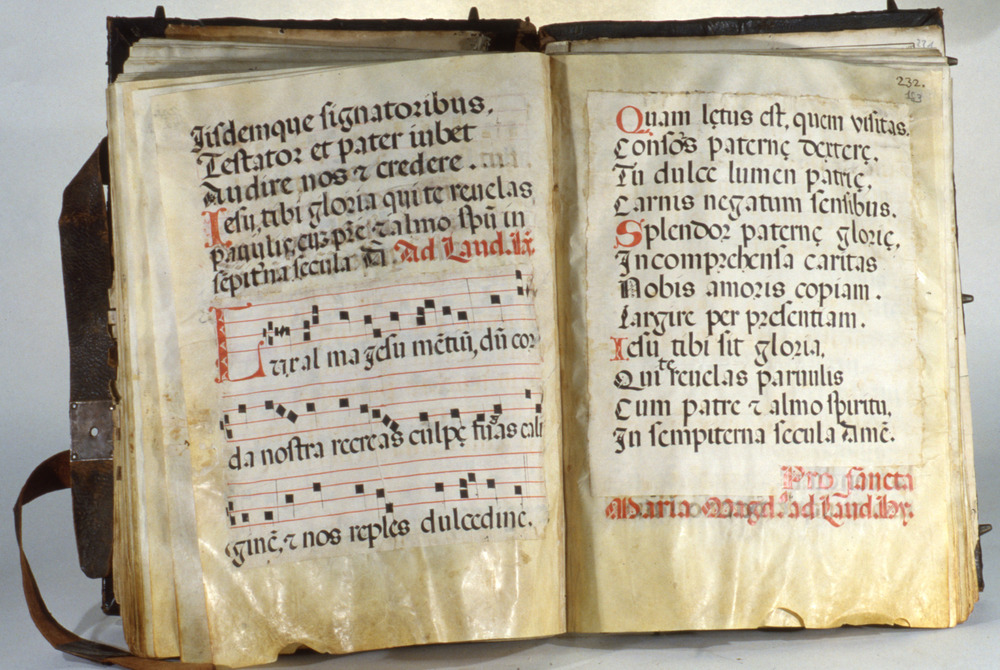 Iisdemque signatoribus,
Testator et pater iubet
Audire nos ⁊ credere.
Iesu, tibi gloria qui te reuelas
paruulis, cū pře ⁊ almo spū in
septna secula. Ad Laud. Hỹ
Lux alma Jesu mētiū, dū cor
da nostra recreas culpę fugas cali
ginē, ⁊ nos reples dulcedine.
232.
Quam lętus est, quem visitas.
Consors paternę dexterę,
Tu dulce lumen patrię,
Carnis negatum sensibus.
Splendor paternę glorię,
Incomprehensa caritas
Nobis amoris copiam.
Largire per presentiam.
Iesu tibi sit gloria,
Qui te reuelas paruulis
Cum patre ⁊ almo spiritu,
In sempiterna secula amē.
Pro sancta
Maria Magd. ad Laud. Hy.